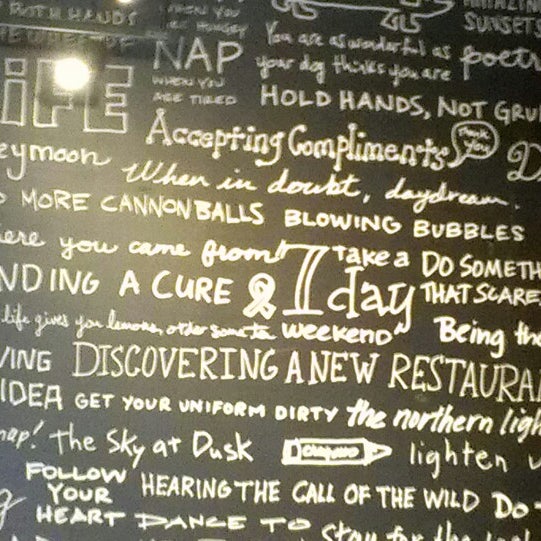 BOTH HANDS
WHEN YOU
ARE HUNGRY
NAP
WHEN YOU
ARE TIRED
LiFE
You are as wonderful as
your dog thinks you are
poetr
SUNSETS
HOLD HANDS, NOT GRU
Accepting Compliments
Thank you
eymoon
When in doubt, daydream.
MORE CANNONBALLS
BLOWING BUBBLES
ere you came from!
Take a
1 day
WEEKEND"
DO SOMETH
THAT SCARE
NDING A CURE
life gives you lemons, order some tea
Being the
VING
DISCOVERING A NEW RESTAURA
IDEA
GET YOUR UNIFORM DIRTY
the northern ligh
nap!
The Sky at Dusk
lighten u
FOLLOW
YOUR
HEART
HEARING THE CALL OF THE WILD
Do
DANCE TO
Stay for the